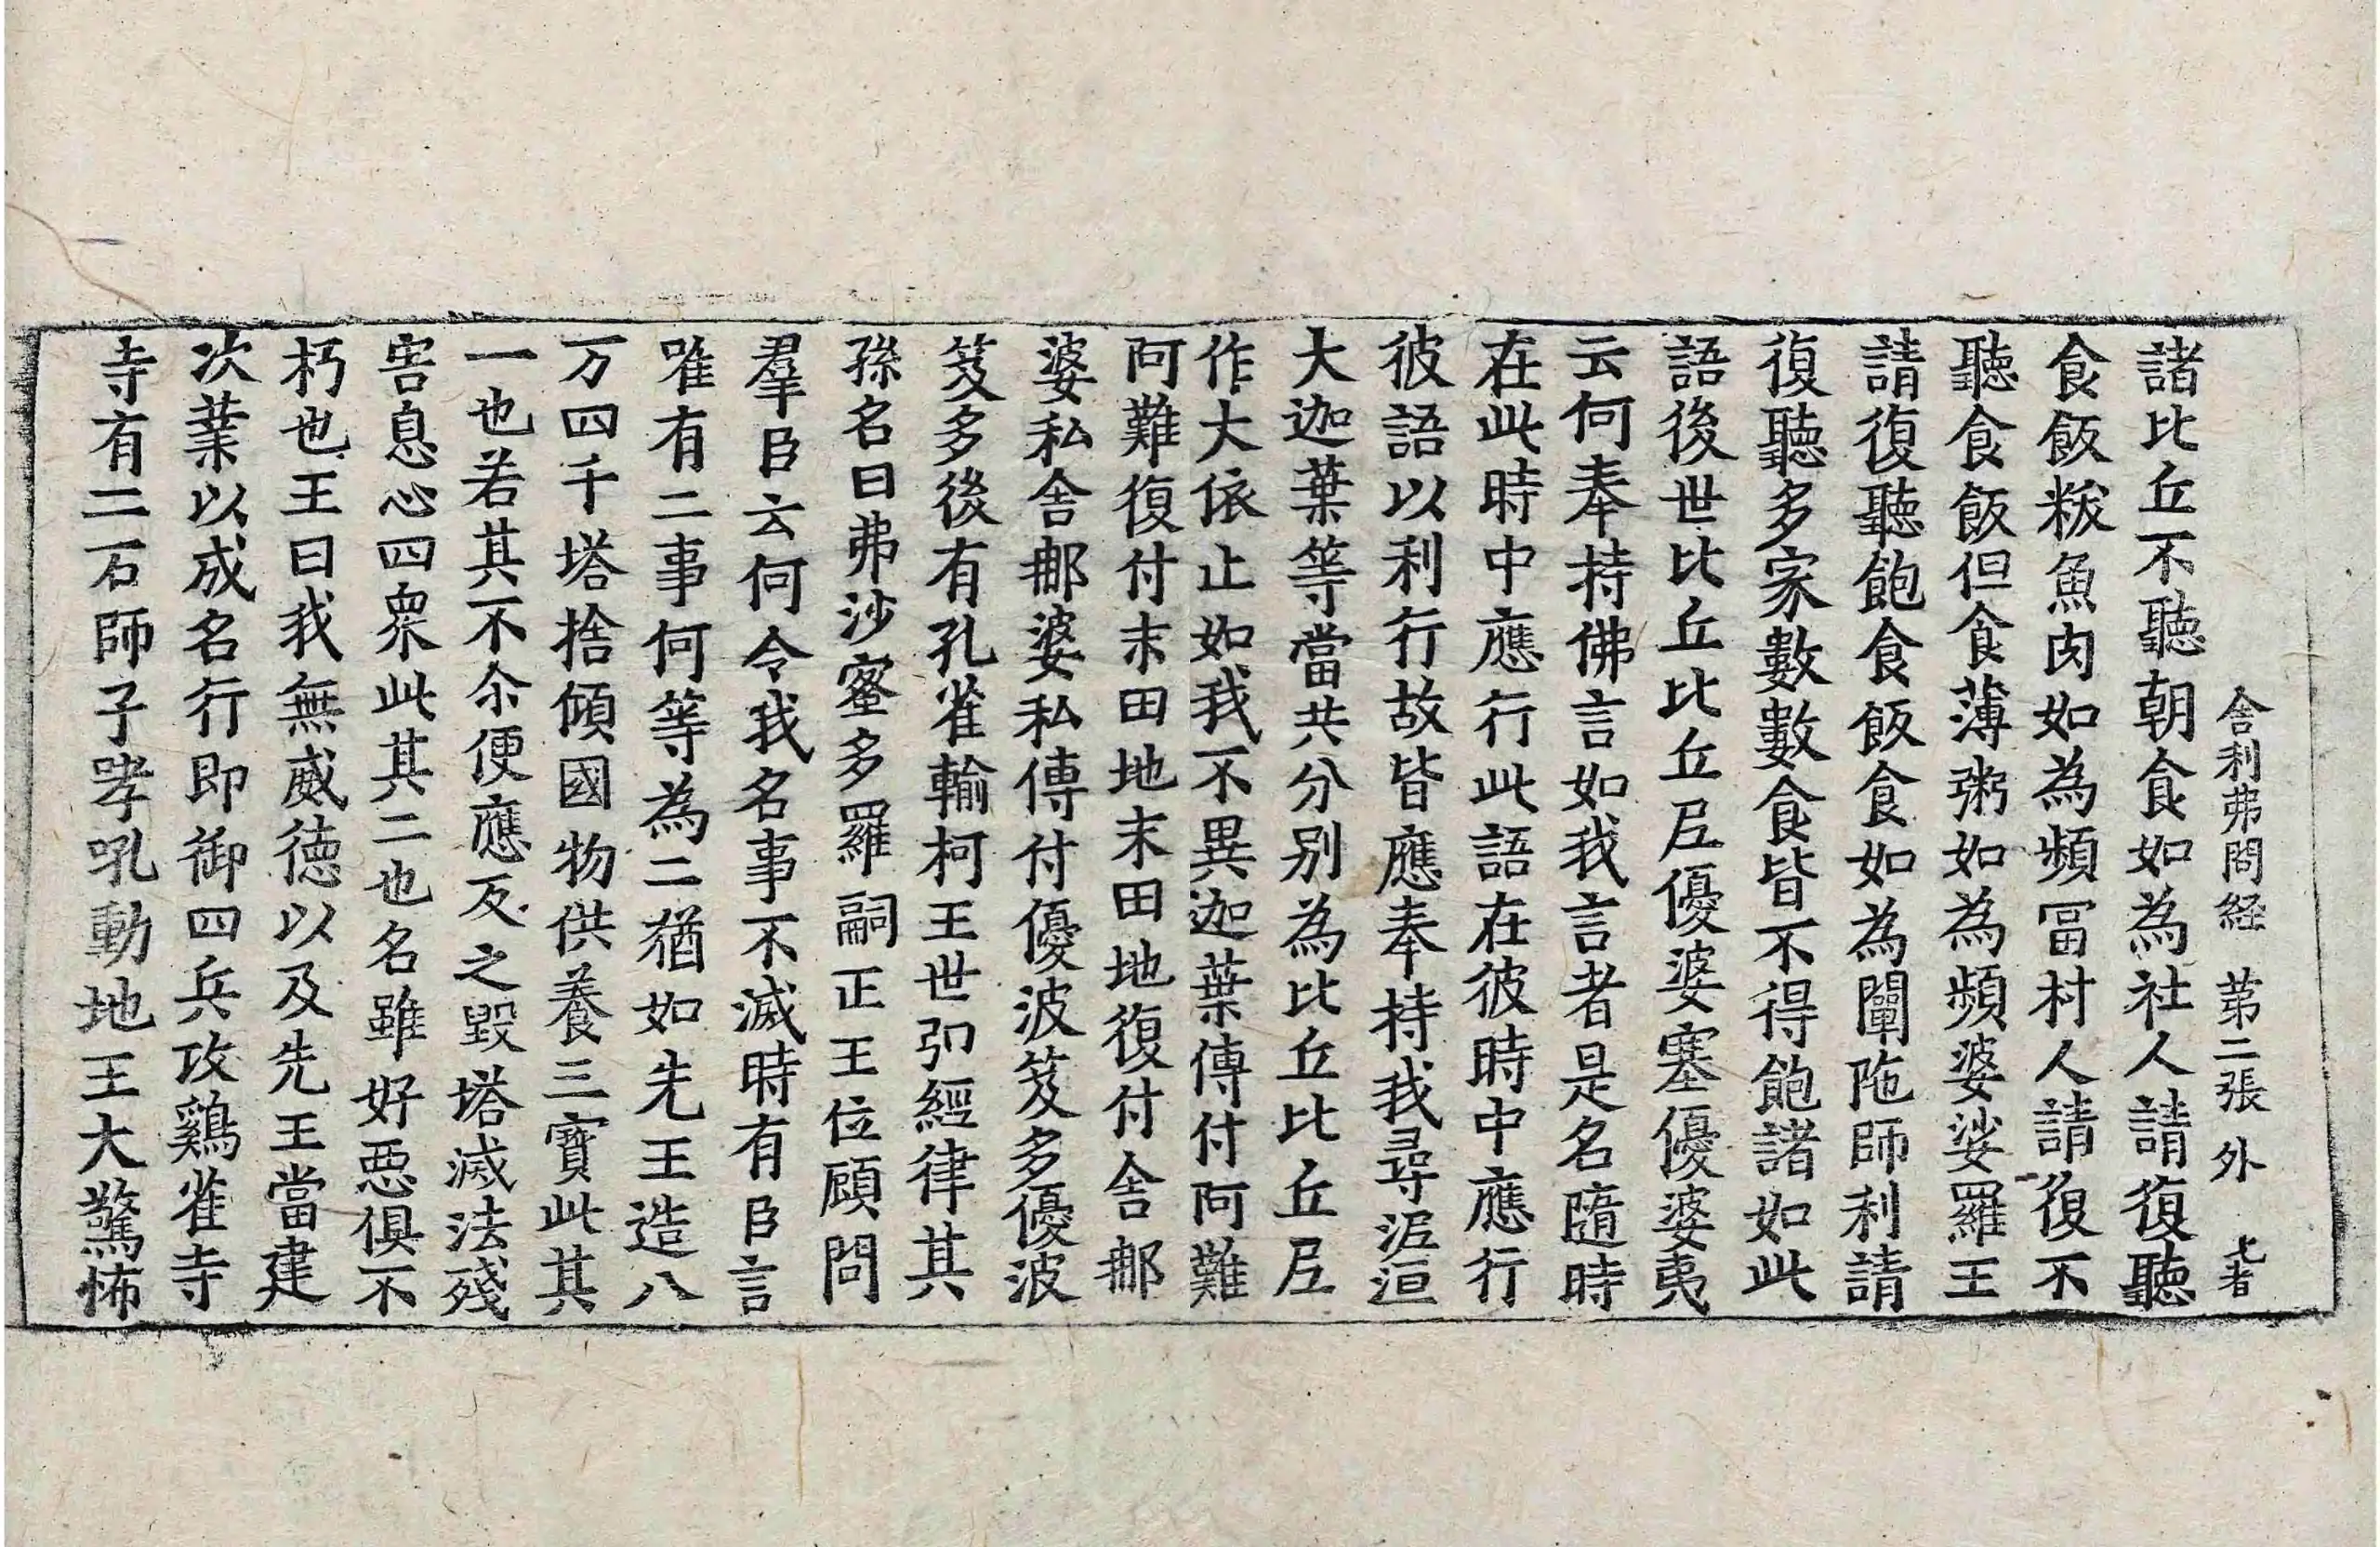 舍利弗問経 第二張 外
諸比丘不聽朝食如為社人請復聽
食飯粄魚肉如為頻畐村人請復不
聽食飯但食薄粥如為頻婆娑羅王
請復聽飽食飯食如為闡陁師利請
復聽多家數數食皆不得飽諸如此
語後世比丘比丘𡰱優婆塞優婆夷
云何奉持佛言如我言者是名隨時
在此時中應行此語在彼時中應行
彼語以利行故皆應奉持我尋泥洹
大迦葉等當共分别為比丘比丘𡰱
作大依止如我不異迦葉傳付阿難
阿難復付末田地末田地復付舍郍
婆私舍郍婆私傳付優波笈多優波
笈多後有孔雀輸柯王世弘經律其
孫名曰弗沙蜜多羅嗣正王位顧問
羣臣云何令我名事不滅時有臣言
唯有二事何等為二猶如先王造八
万四千塔捨傾國物供養三寳此其
一也若其不尒便應反之毀塔滅法殘
害息心四衆此其二也名雖好惡俱不
朽也王曰我無威德以及先王當建
次業以成名行即御四兵攻鷄雀寺
寺有二石師子哮吼動地王大驚怖